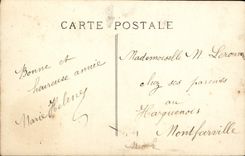 CARTE POSTALE
Bonne et
heureuse année
Marie
Mademoiselle M. Leroux
chez ses parents
au
Montfarville